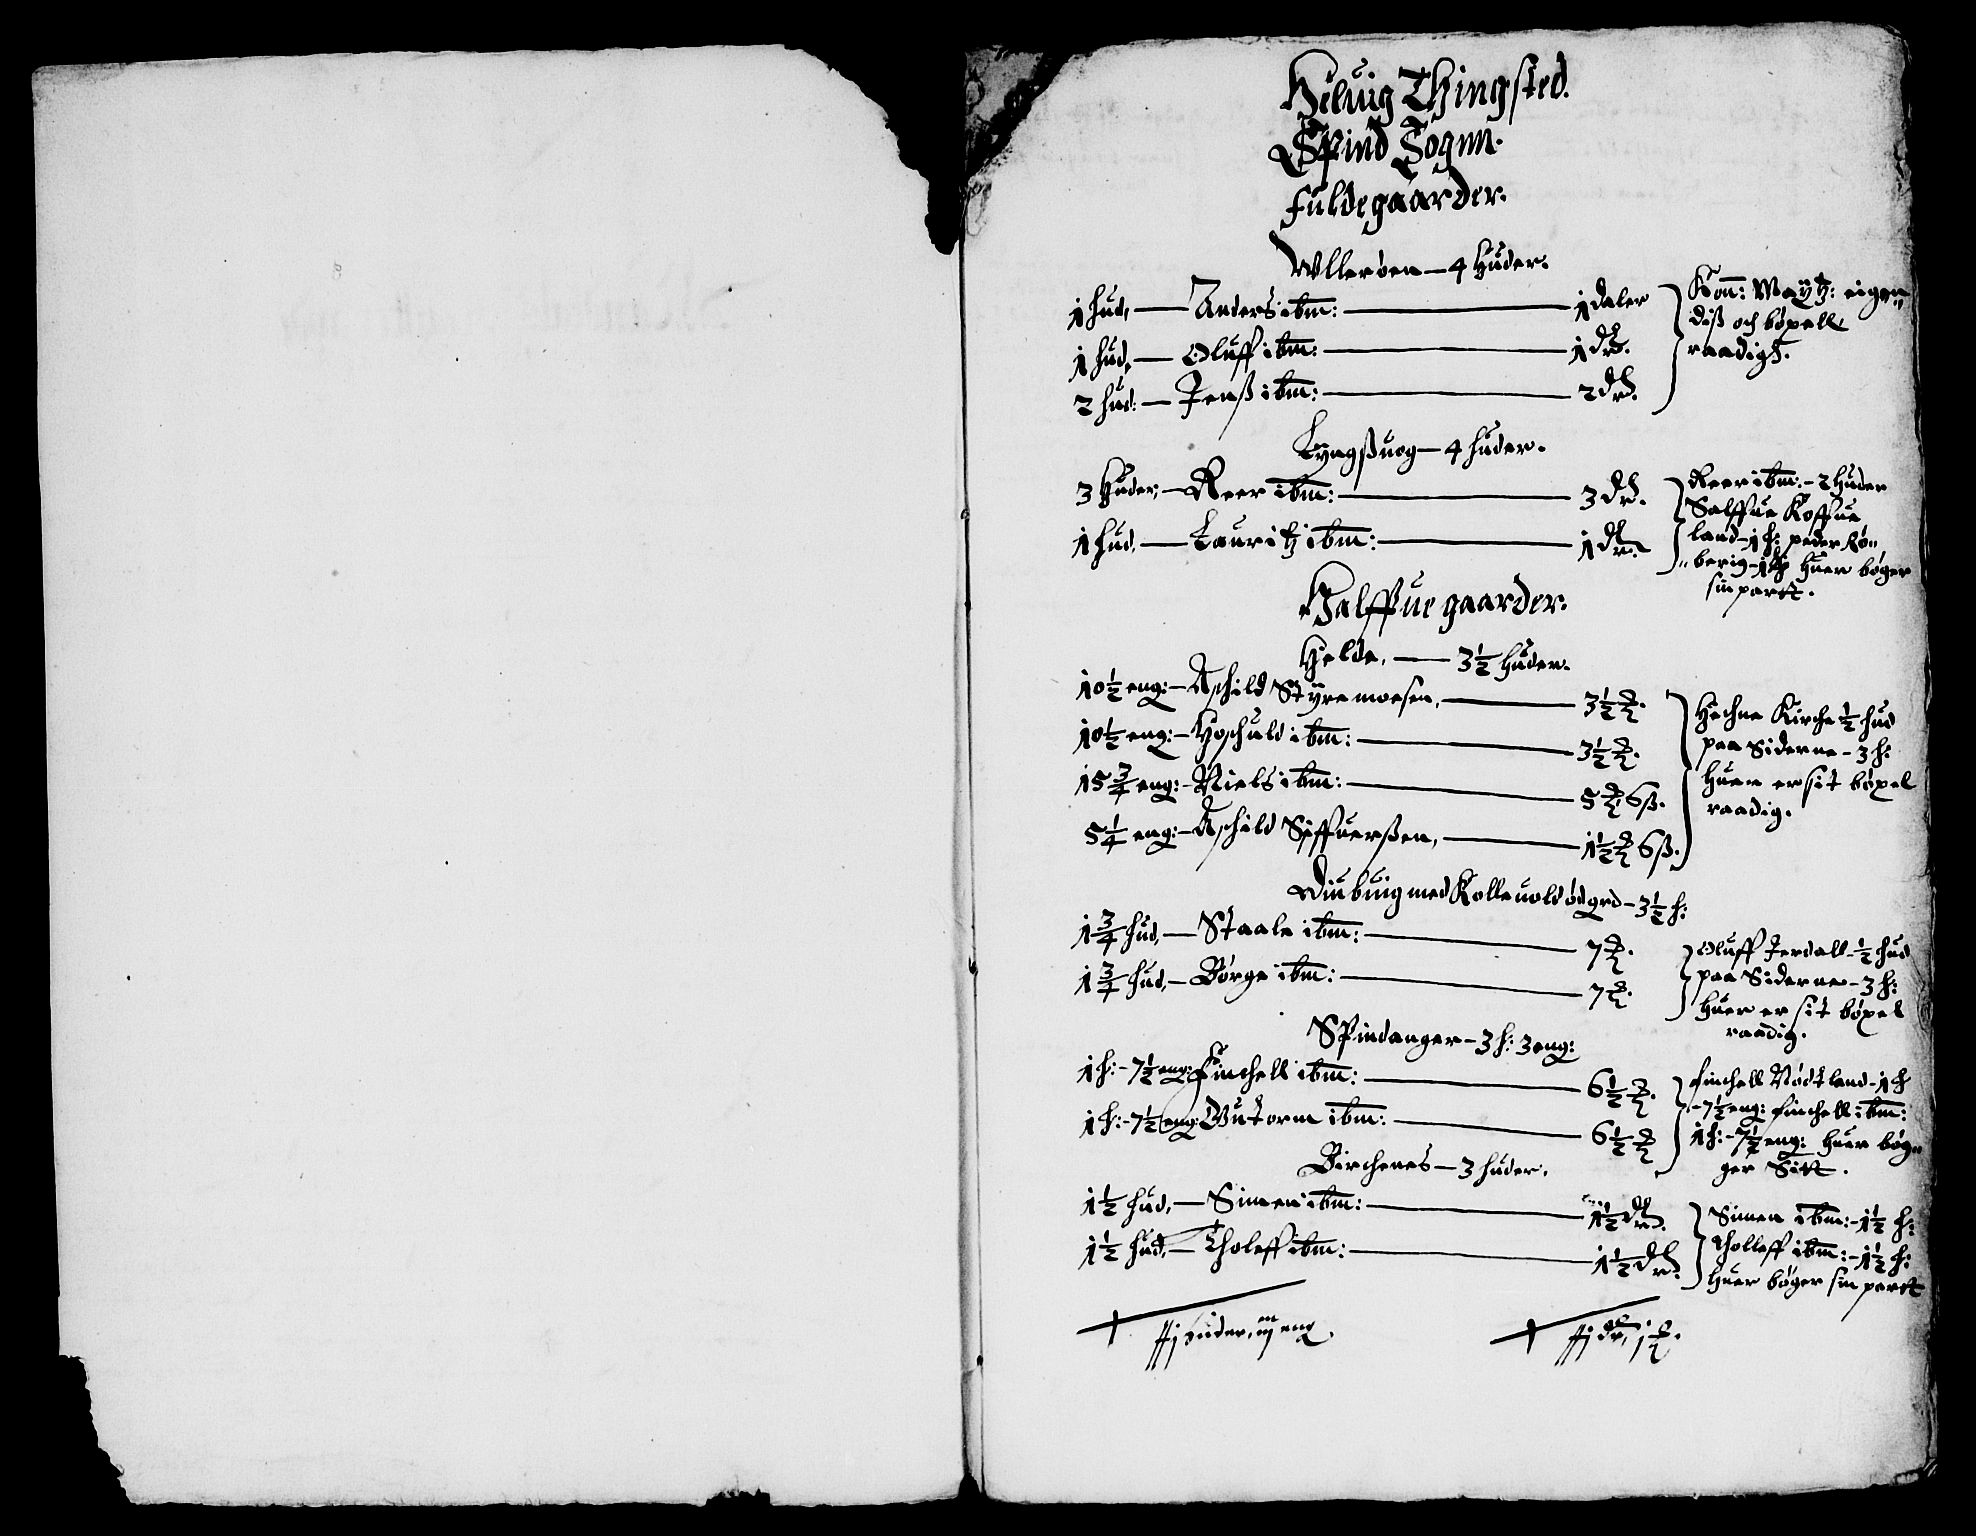 Heluig Thingsted.
Spind Sognn.
fuldegaarder.
Wllerøen — 4 Huder.
1 hud, — Anders ibm: — 1 daler
1 hud, — Oluff ibm: — 1 dr.
2 hud: — Jenß ibm: — 2 dr.
Kon: Maytz: eigen
diß och bøxell
raadigt.
Lyngßuog — 4 huder.
3 Huder, — Reer ibm: — 3 dr.
1 hud, — Lauritz ibm: — 1 dr.
Reer ibm: - 2 Huder
Salffue Koffue
land - 1 h: peder
berig - 1 h huer bøger
sin partt.
Halffue gaarder.
Helde, — 3½ huder.
10½ eng: — Aschild Styremoesen, — 3½
10½ eng: — Hoschuld ibm: — 3½
15¾ eng: - Niels ibm: — 5 6 ß.
5¼ eng: — Aschild Siffuerßen, — 1½ 6 ß.
Hechne Kirche ½ hud
paa Siderne - 3 h:
huer er sit bøxel
raadig.
Diubuig med Kolleuold ødgrd - 3½ h:
1¾ hud, — Staale ibm: — 7
1¾ hud, — Børge ibm: — 7
Oluff Jerdall - ½ hud
paa Siderne - 3 h:
huer er sit bøxel
raadig.
Spindanger - 3 h: 3 eng:
1 h: - 7½ eng: finchell ibm: — 6½
1 h: - 7½ eng: Gutorm ibm: — 6½
finchell Nødtland - 1 h
- 7½ eng: finchell ibm:
1 h: - 7½ eng: huer bøg
ger Sitt.
Birchenes — 3 huder.
1½ hud, — Simen ibm: — 1½ dr.
1½ hud, — Tholeff ibm: — 1½ dr.
Simen ibm: - 1½ h:
Tholleff ibm: - 1½ h:
huer bøger sin partt
huder, iij eng
dr, 1